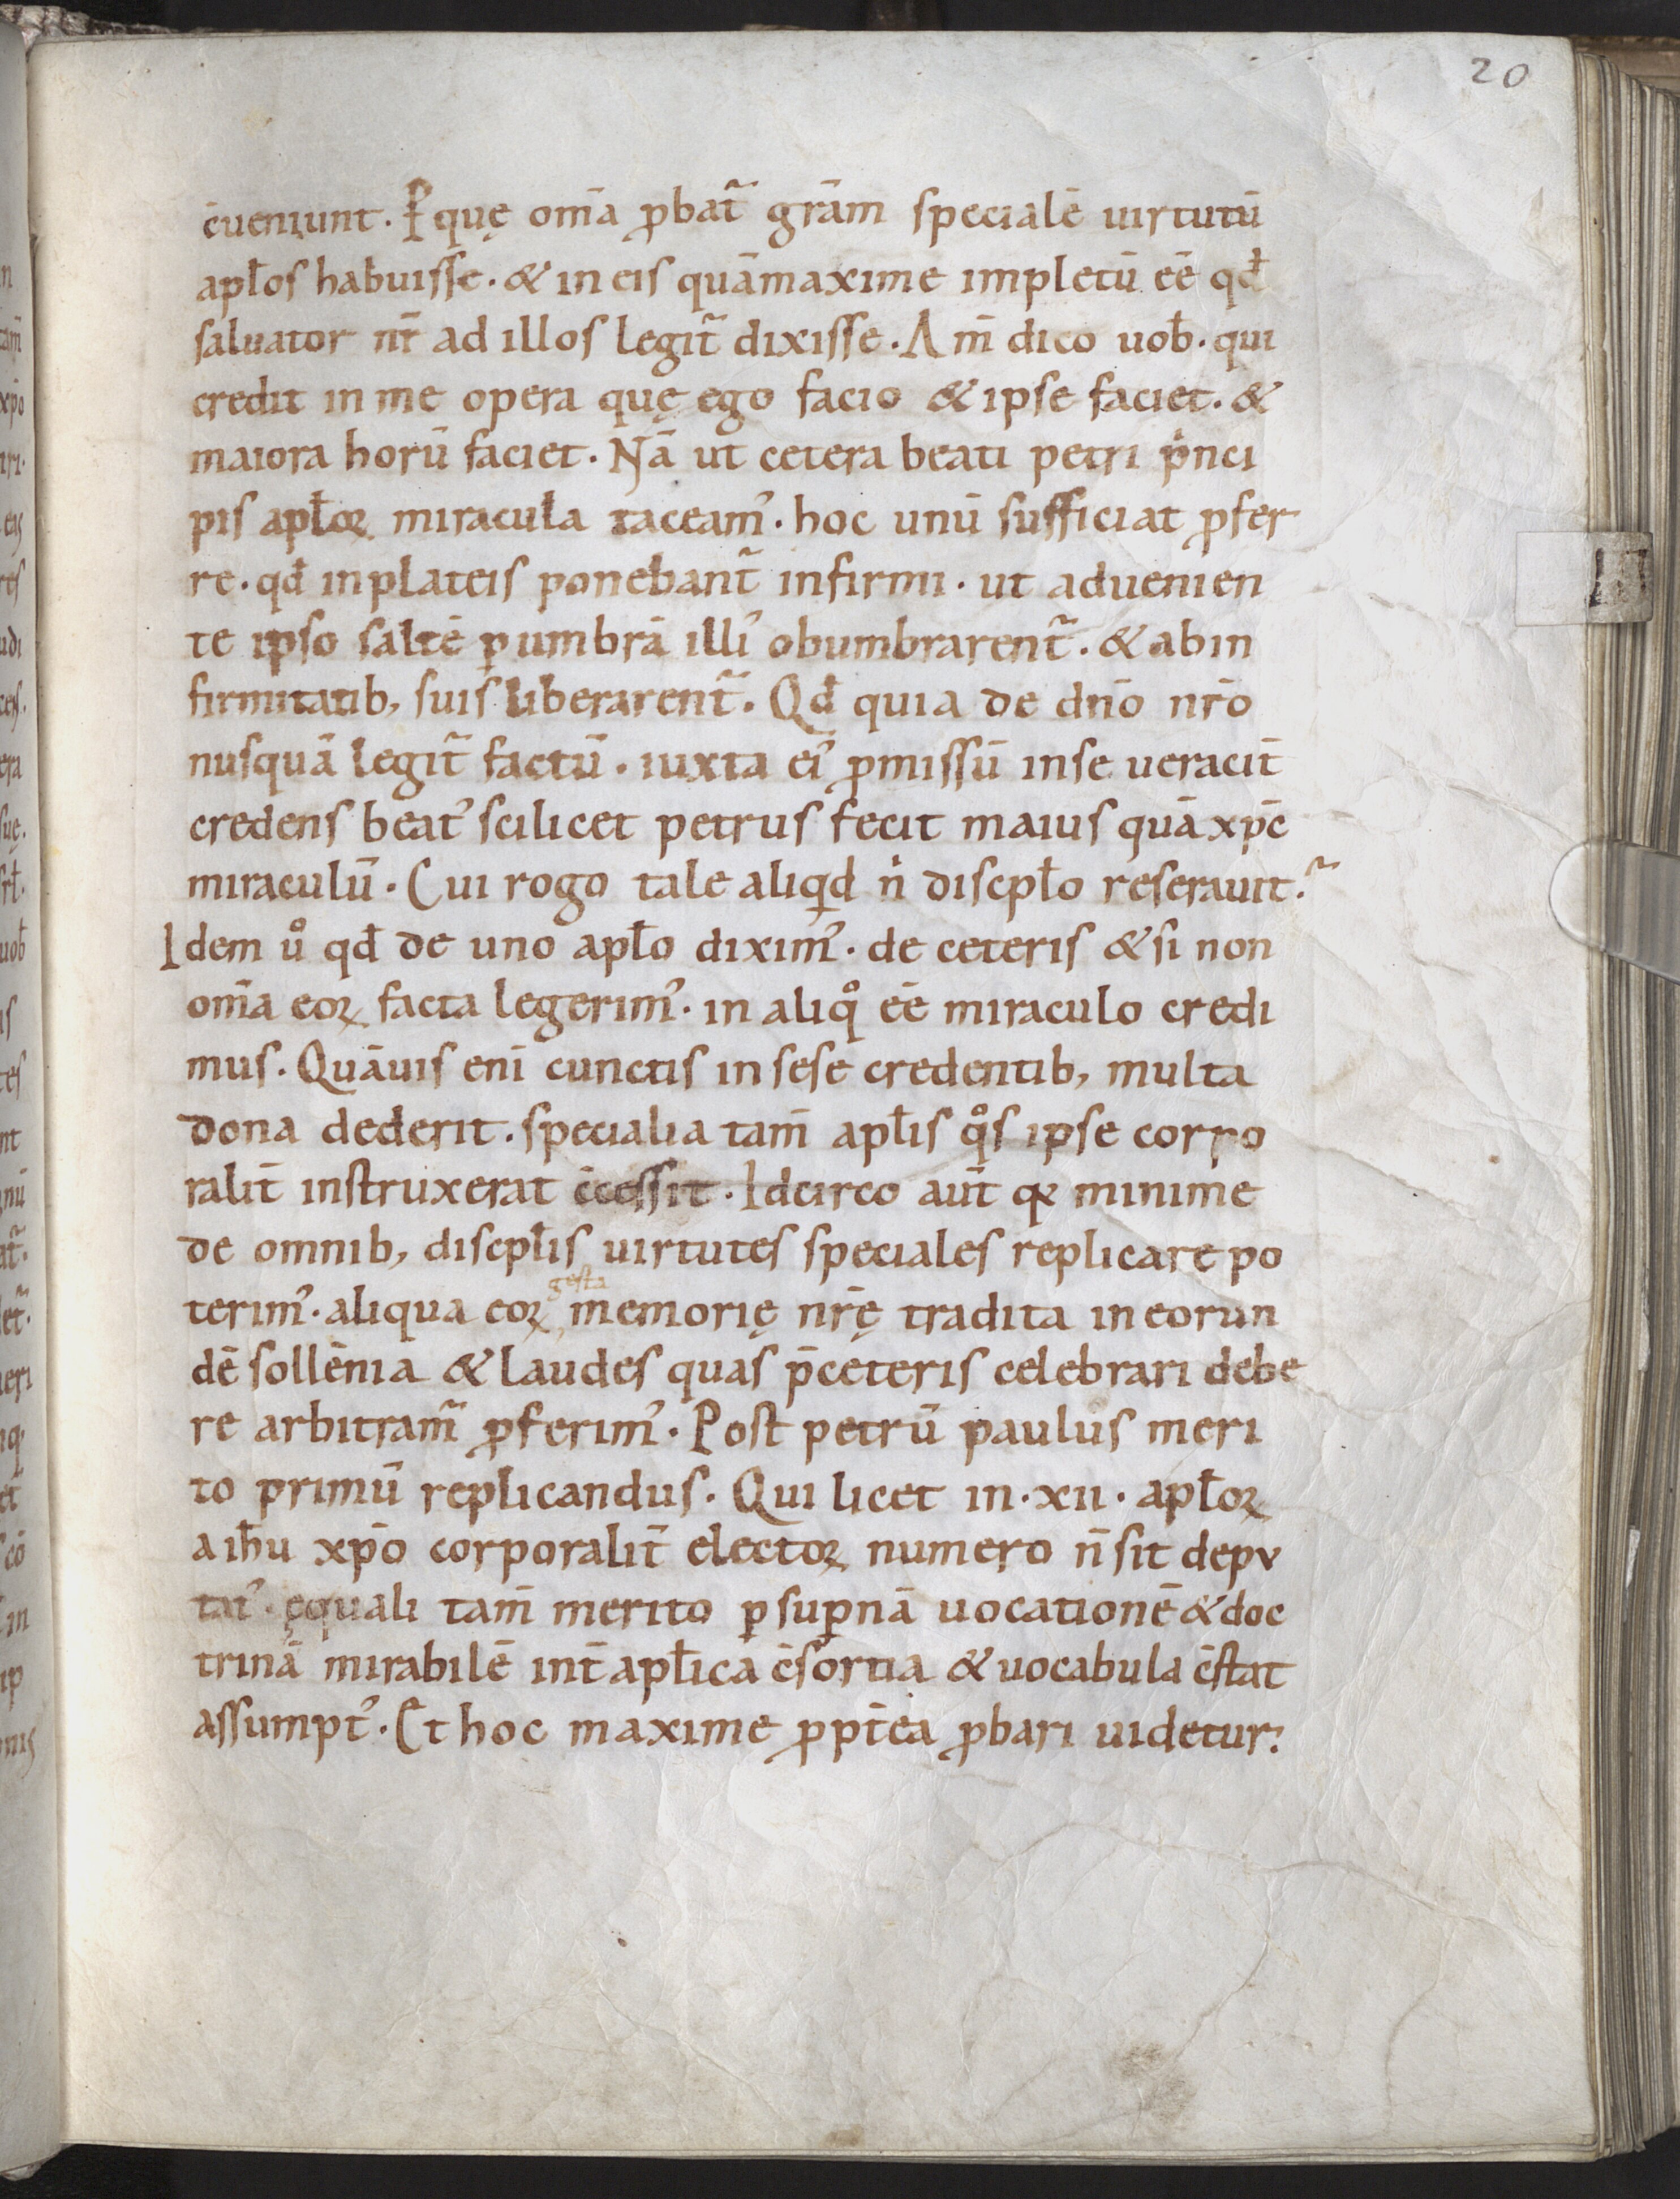 20
c̄ueniunt. P̱ quę om̄a ꝓbat᷑ gr̄am speciale᷑ uirtutū
apl̄os habuisse. & in eis quāmaxime impletū ee᷑ qd̄
saluator nr̄ ad illos legit᷑ dixisse. Am̄ dico uob̄. qui
credit in me opera quę ego facio & ipse faciet. &
maiora horū faciet. Nā ut cetera beati petri pͥnci
pis apl̄oꝝ miracula taceam᾿. hoc unū sufficiat ꝓfer
re. qd̄ in plateis ponebant᷑ infirmi. ut aduenien
te ipso saltē ꝑ umbrā illi᾿ obumbrarent᷑. & ab in
firmitatib, suis liberarent᷑. Qd̄ quia de dn̄o nr̄o
nusquā legit᷑ factū. iuxta ei᾿ ꝓmissū in se ueracit̄
credens beat᾿ scilicet petrus fecit maius quā xp̄c
miraculū. Cui rogo tale aliqͥd n̄ discpl̄o reserauit.᷑
Idem uͦ qd̄ de uno apl̄o dixim᾿. de ceteris & si non
om̄a eoꝝ facta legerim᾿. in aliqͦ ēē miraculo credi
mus. Quāuis enī cunctis in sese credentib, multa
dona dederit. specialia tam̄ apl̄is qͦs ipse corpo
ralit̄ instruxerat c̄cessit. Idcirco aut̄ qꝛ minime
de omnib, discpl̄is uirtutes speciales replicare po
terim᾿. aliqua eoꝝ, gesta memorię nr̄ę tradita in eorun
dē sollēnia & laudes quas p̄ceteris celebrari debe
re arbitram᷑ ꝓferim᾿. Post petrū paulus meri
to primū replicandus. Qui licet in .xii. apl̄oꝝ
a ih̄u xp̄o corporalit̄ electoꝝ numero n̄ sit depu
tat᾿. ęquali tam̄ merito ꝑ suꝑnā uocationē & doc
trinā mirabilē int̄ apl̄ica c̄sortia & uocabula c̄stat
assumpt᾿. Et hoc maxime ꝓpt̄ea ꝓbari uidetur.